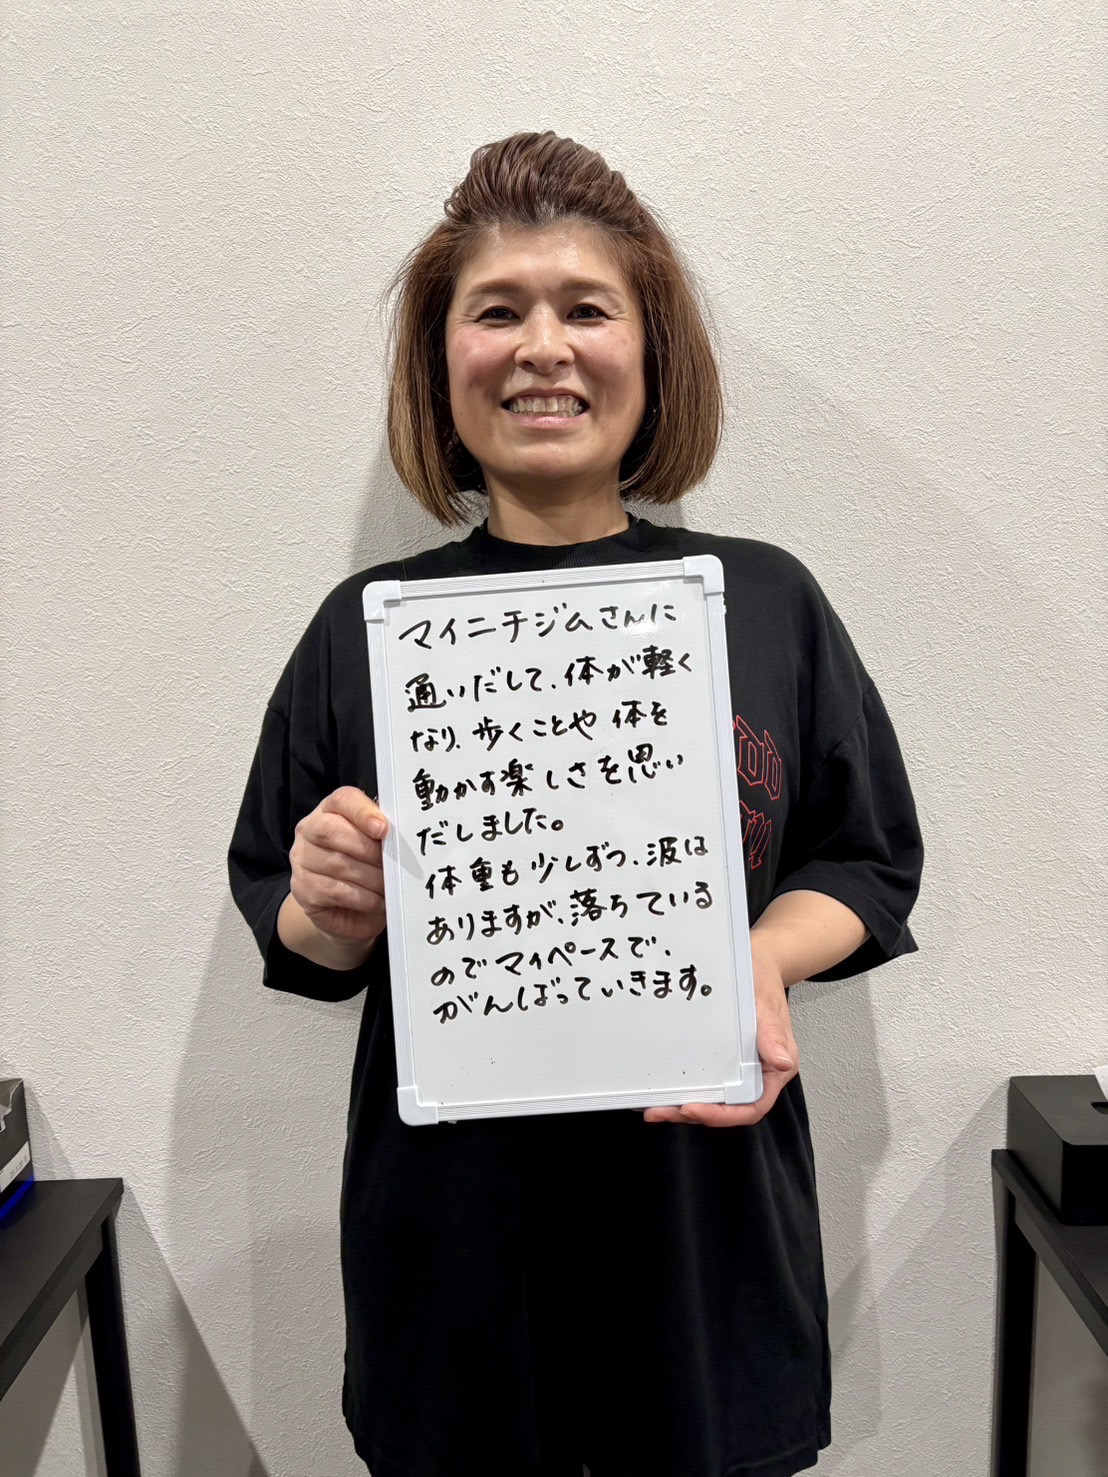 マイニチジムさんに
通いだして、体が軽く
なり、歩くことや体を
動かす楽しさを思い
だしました。
体重も少しずつ、波は
ありますが、落ちている
のでマイペースで、
がんばっていきます。